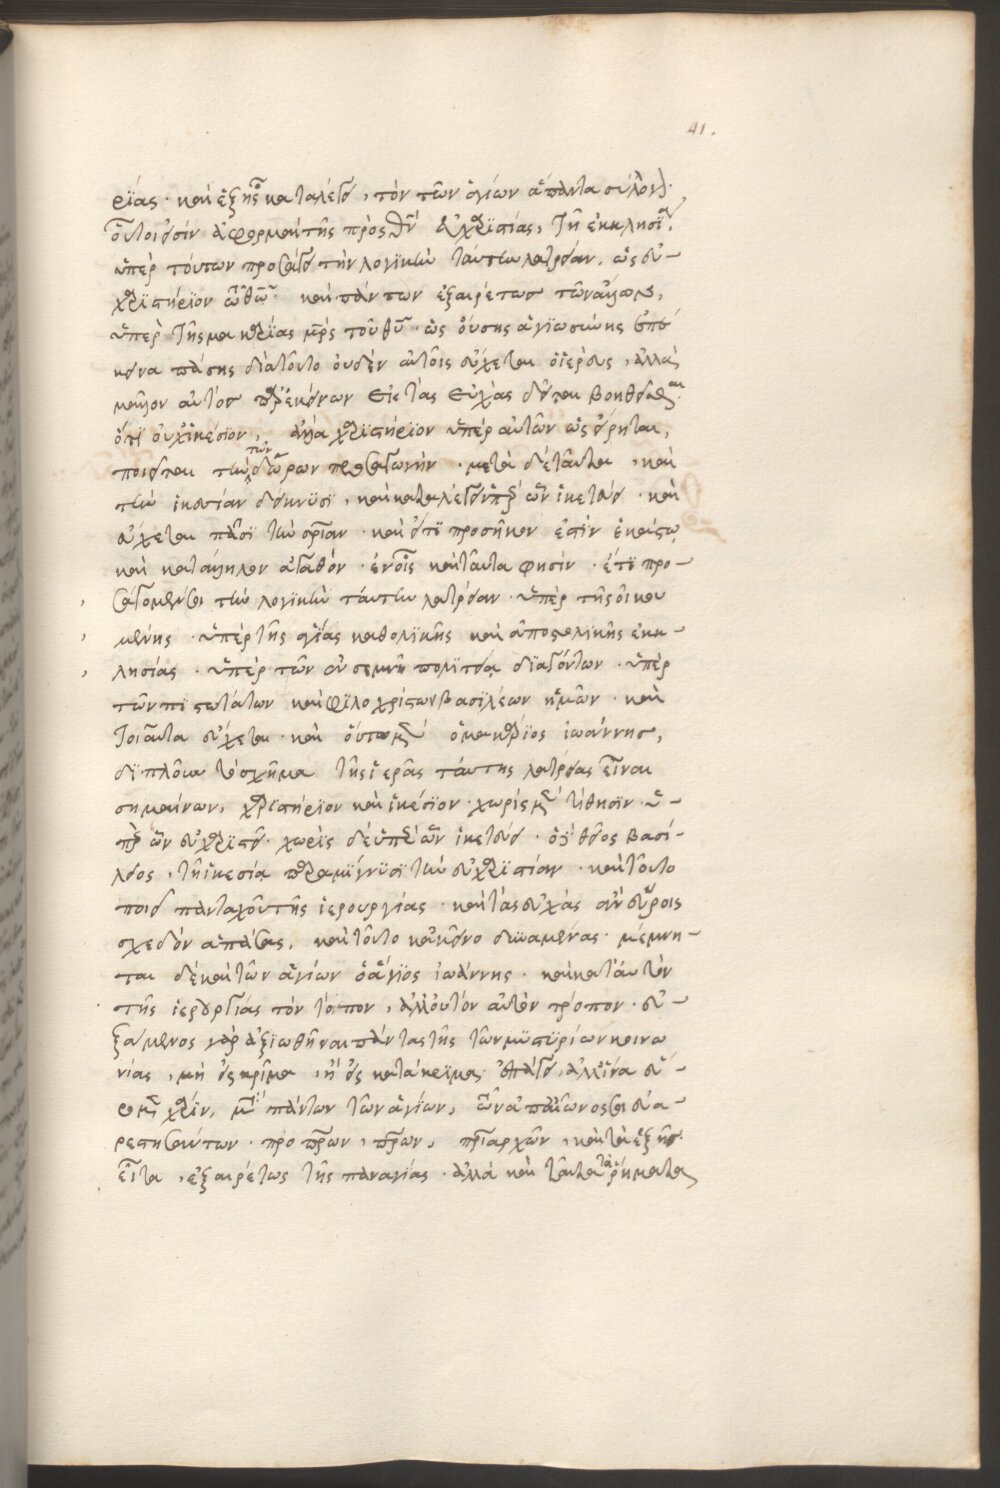 41.
ρίας· καὶ ἑξῆς καταλέγει, τὸν τῶν ἁγίων ἅπαντα σύλλογον.
οὗτοι εἰσὶν ἀφορμαὶ τῆς πρὸς θν εὐχαριστίας, τῇ ἐκκλησίᾳ,
ὑπὲρ τούτων προσάγει τὴν λογικὴν ταύτην λατρείαν, ὡς εὐ-
χαριστήριον τῷ θῷ· καὶ πάντων ἐξαιρέτως τῶν ἄλλων,
ὑπὲρ τῆς μακαρίας μρς τοῦ θυ· ὡς οὔσης ἁγιωσύνης ἐπέ
κεινα πάσης διὰ τοῦτο οὐδὲν αὐτοῖς εὔχεται ὁ ἱερεὺς, ἀλλὰ
μᾶλλον αὐτὸς παρ' ἐκείνων εἰς τὰς εὐχὰς δεῖται βοηθεῖσθαι·
ὅτι οὐχ ἱκέσιον, ἀλλὰ χαριστήριον ὑπὲρ αὐτῶν ὡς εἴρηται,
ποιεῖται τὴν τῶν δώρων προσαγωγήν· μετὰ δὲ ταῦτα, καὶ
τὴν ἱκεσίαν δείκνυσι, καὶ καταλέγει ὑπὲρ ὧν ἱκετεύει· καὶ
εὔχεται πᾶσι τὴν σριαν· καὶ ὅτι προσῆκον ἐστὶν ἑκάστῳ
καὶ κατάλληλον ἀγαθόν· ἐν οἷς καὶ ταῦτα φησίν· ἔτι προ-
σάγομέν σοι τὴν λογικὴν ταύτην λατρείαν· ὑπὲρ τῆς οἰκου
μένης· ὑπὲρ τῆς ἁγίας καθολικῆς καὶ ἀποστολικῆς ἐκκ-
λησίας· ὑπὲρ τῶν ἐν σεμνῇ πολιτείᾳ διαγόντων· ὑπὲρ
τῶν πιστοτάτων καὶ φιλοχρίστων βασιλέων ἡμῶν· καὶ
τοιαῦτα εὔχεται· καὶ οὕτω μὲν ὁ μακάριος ἰωάννης,
διπλοῦν τὸ σχῆμα τῆς ἱερᾶς ταύτης λατρείας εἶναι
σημαίνων, χαριστήριον καὶ ἱκέσιον· χωρὶς μὲν τίθησιν· ὑ-
πὲρ ὧν εὐχαριστεῖ· χωρὶς δὲ ὑπὲρ ὧν ἱκετεύει· ὁ δὲ θεῖος βασί-
λειος, τῇ ἱκεσίᾳ παραμίγνυσι τὴν εὐχαριστίαν· καὶ τοῦτο
ποιεῖ πανταχοῦ τῆς ἱερουργίας· καὶ τὰς εὐχὰς ἂν εὕροις
σχεδὸν ἁπάσας, καὶ τοῦτο κἀκεῖνο δυναμένας· μέμνη-
ται δὲ καὶ τῶν ἁγίων ὁ ἅγιος ἰωάννης· καὶ κατ' αὐτὸν
τῆς ἱερουργίας τὸν τόπον, ἀλλ' οὐ τὸν αὐτὸν τρόπον· εὐ-
ξάμενος γὰρ ἀξιωθῆναι πάντας τῆς τῶν μυστηρίων κοινω
νίας, μὴ εἰς κρῖμα, ἢ εἰς κατάκριμα· ἐπάγει, ἀλλ' ἵνα εὕ-
ρωμεν χάριν, μετὰ πάντων τῶν ἁγίων, τῶν ἀπ' αἰῶνος σοι εὐα-
ρεστησάντων· προπρων, πρων, πριαρχῶν, καὶ τὰ ἑξῆς·
εἶτα, ἐξαιρέτως τῆς παναγίας· ἀλλὰ καὶ ταῦτα τὰ ῥήματα